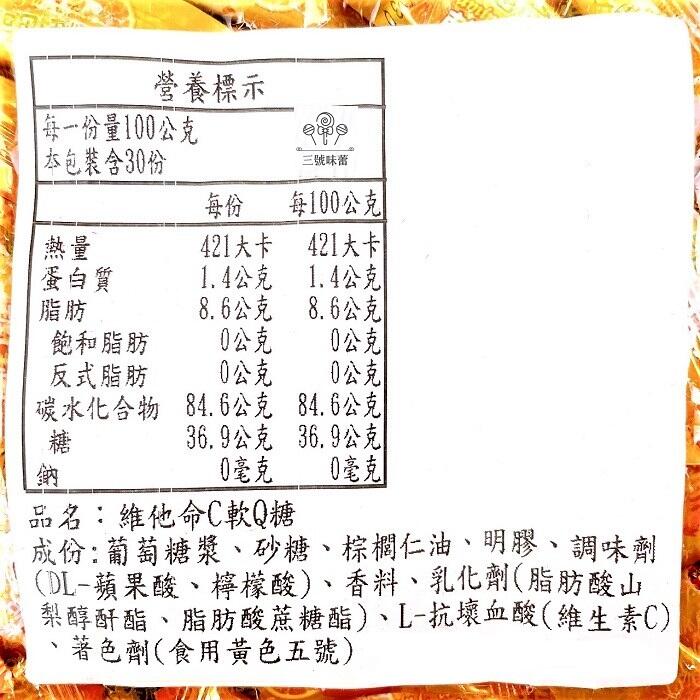 營養標示
每一份量100公克
本包裝含30份
三號味蕾
每份 每100公克
熱量 421大卡 421大卡
蛋白質 1.4公克 1.4公克
脂肪 8.6公克 8.6公克
飽和脂肪 0公克 0公克
反式脂肪 0公克 0公克
碳水化合物 84.6公克 84.6公克
糖 36.9公克 36.9公克
鈉 0毫克 0毫克
品名：維他命C軟Q糖
成份:葡萄糖漿、砂糖、棕櫚仁油、明膠、調味劑
(DL-蘋果酸、檸檬酸)、香料、乳化劑(脂肪酸山
梨醇酐酯、脂肪酸蔗糖酯)、L-抗壞血酸(維生素C)
、著色劑(食用黃色五號)